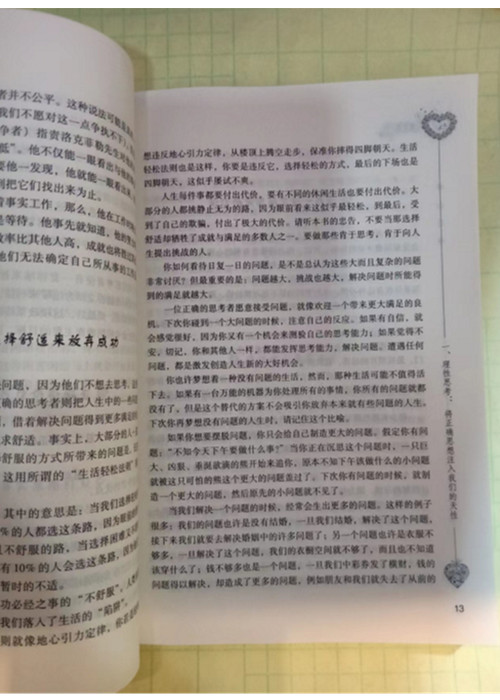 者并不公平。这种说法可能是真
我们不愿对这一点争执不下，
争者）指责洛克菲勒先生对
低”。他不仅能一眼看出
要他一发现，他就能一眼看出
则把它们找出来为止。
着事实工作，那么，他在工作
是等待。他事先就知道，他的
效率比其他人高，成就也将
他们无法确定自己所从事的工作
择舒适来放弃成功
决问题，因为他们不想去思考
正确的思考者则把人生中的一些
，借着解决问题得到更多满足
求舒适。事实上，大部分的人
择舒服的方式所带来的问题是
这用所谓的“生活轻松法则”
其中的意思是：当我们选择
%的人都选这条路，因为眼前
但不舒服的路，当选择困难又不
有10%的人会选这条路，因为
暂时的不适。
功必经之事的“不舒服”，人
我们落入了生活的“陷阱”。
则就像地心引力定律，你若是
想违反地心引力定律，从楼顶上腾空走步，保准你摔得四脚朝天。生活
轻松法则也是这样，你要是违反它，选择轻松的方式，最后的下场也是
四脚朝天，这似乎屡试不爽。
人生每件事都要付出代价，要有不同的休闲生活也要付出代价。大
部分的人都挑静止无为的路，因为眼前看来这似乎最轻松，到最后，受
到了自己的欺骗，付出了极大的代价。请听本书的忠告，不要当那选择
舒适却牺牲了成就与满足的多数人之一。要做那些肯于思考，肯于向人
生提出挑战的人。
你如何看待日复一日的问题，是不是总认为这些大而且复杂的问题
非常讨厌？但的最重要的是：问题越大，挑战也越大，解决问题时所能得
到的满足就越大。
一位正确的思考者愿意接受问题，就像欢迎一个带来更大满足的良
机。下次你碰到一个大问题的时候，注意自己的反应。如果有自信，就
会感觉很好，因为你又有一个机会来测验自己的思考能力；如果觉得不
安，切记，你和其他人一样，都能发挥思考能力，解决问题。遭遇任何
问题，都是激发创造人生新的大好机会。
你也许梦想着一种没有问题的生活，然而，那种生活可能不值得活
下去。如果有一台万能的机器为你处理所有的事情，你所有的问题就都
没有了，但是这个替代的方案不会吸引你放弃本来就有些问题的人生。
下次你再梦想没有问题的人生时，请记住这个比喻。
如果你想要摆脱问题，你只会给自己制造更大的问题。假定你有问
题：“不知今天下午要做什么事！”当你正在沉思这个问题时，一只巨
大、凶狠、垂涎欲滴的熊开始来追你，原本不知下午该做什么的小问题
就被这只可怕的熊这个更大的问题盖过了。下次你有问题的时候，就制
造一个更大的问题，然后原先的小问题就不见了。
当我们解决一个问题的时候，经常会生出更多的问题。这样的例子
很多：我们的问题也许是没有结婚，一旦我们结婚，解决了这个问题，
接下来我们就要去解决婚姻中的许多问题了；另一个问题也许是衣服不
够多，一旦解决了这个问题，我们的衣橱空间就不够了，而且也不知道
该穿什么了；钱不够多也是一个问题，一旦我们中彩券发了横财，钱的
问题得以解决，却造成了更多的问题，例如朋友和我们就失去了从前的
一、理性思考：将正确思想注入我们的天性
13